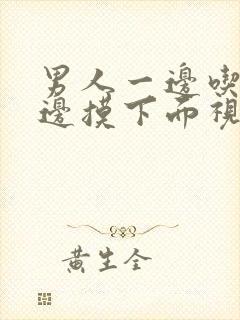 男人一邊喫
邊摸下面視
黃生全